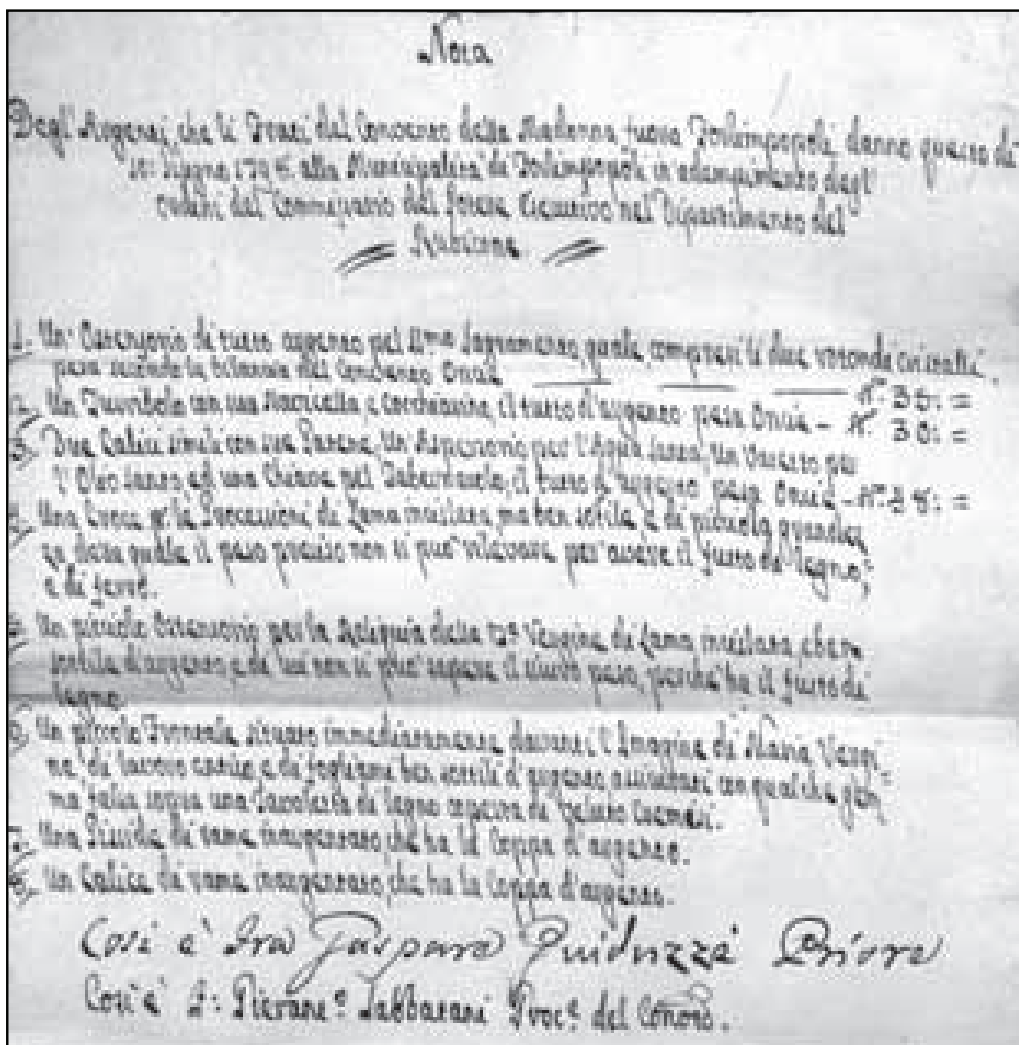 Nota
Degl'Argenti, che li Frati del Convento della Madonna fuora Forlimpopoli, danno questo dì
10: Giugno 179 alla Municipalità di Forlimpopoli in adempimento degl'
ordini del Commissario del Potere Esecutivo nel Dipartimento del
Rubicone
1. Un Ostensorio di tutto argento pel SSmo Sagramento, quale, compresi li due rotondi cristalli,
pesa secondo la bilancia del Convento Oncie — N.° 36: =
2. Un Turribolo con sua Navicella, e Cocchiarino, il tutto d'argento pesa Oncie - N.° 30: =
3. Due Calici simili con sue Patene, Un Aspersorio per l'Aqua Santa, Un Vasetto per
l'Oleo Santo, ed una Chiave pel Tabernacolo, il tutto d'argento pesa Oncie - N.° 38: =
4. Una Croce per le Processioni di Lama inisilata, ma ben sottile, e di picciola grandez
za della quale il peso preciso non si può rilevare per avere il fusto di legno,
e di ferro.
5. Un picciolo Ostensorio per la Reliquia della Vergine di Lama ben
sottile d'argento, e di cui non si può sapere il vero peso, perchè ha il fusto di
legno.
6. Un piccolo Frontale situato immediatamente davanti l'Imagine di Maria Vergi
ne, di lavoro antico, e di fogliami ben sottili d'argento con qualche gem
ma falsa sopra una Tavoletta di legno coperta di Veluto Cremesi.
7. Una Pisside di rame inargentato, che ha la Coppa d'argento.
8. Un Calice di rame inargentato, che ha la Coppa d'argento.
Così è Fra Gaspare Guiduzzi Priore
Così è F: Pierant.° Fabbarani Proc.e del Conv.to.